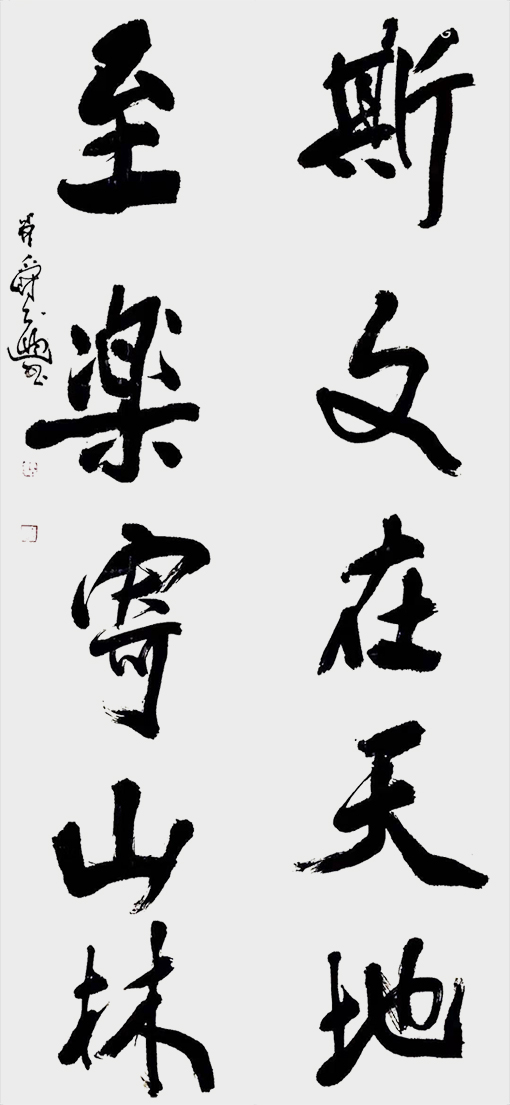 斯文在天地
至楽寄山林